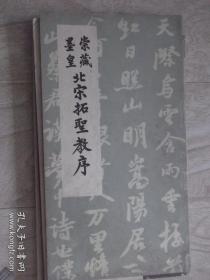 崇藏
墨皇
北宋拓聖教序
天際烏雲含雨重樓
紅日照山明嵩陽居
人萬里
詩也
孔夫子旧书网